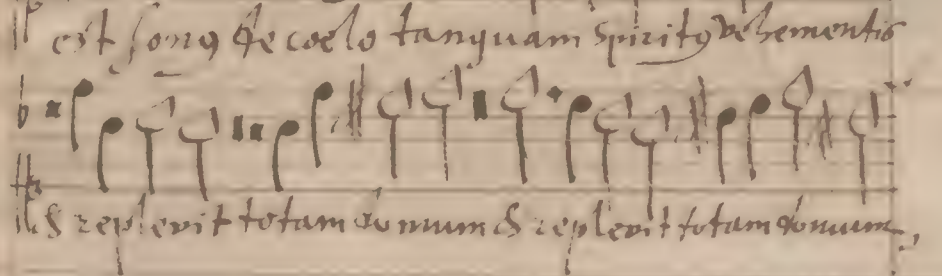 est sonꝰ de coelo tanquam spiritꝰ vehementis
& replevit totam domum & replevit totam domum